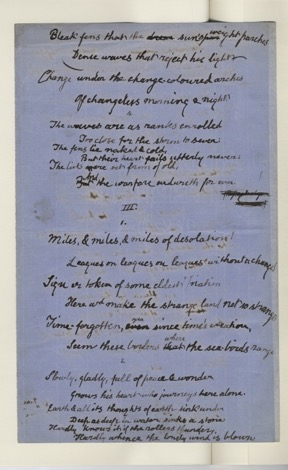 Bleak fens that the sun's weight parches
Dense waves that reject his light
Change under the change-coloured arches
Of changeless morning & night
2
The waves are as ranks enrolled
Too close for the storm to sever
The fens lie naked & cold,
But their heart fails utterly never
The lists were set from of old,
And the warfare endureth for ever
III.
1.
Miles, & miles, & miles of desolation!
Leagues on leagues on leagues without a change
Sign or token of some eldest nation
Here would make the strange land not so strange
Time-forgotten, yea since time's creation,
Seem these borders where the sea birds range
2
Slowly, gladly, full of peace & wonder
Grows his heart who journeys here alone.
Earth & all its thoughts of earth sink under
Deep as deep in water sinks a stone
Hardly knows it if the rollers thunder,
Hardly whence the lonely wind is blown